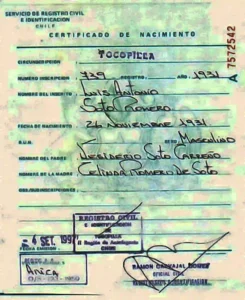 SERVICIO DE REGISTRO CIVIL
E IDENTIFICACION
CHILE
CERTIFICADO DE NACIMIENTO
TOCOPILLA
CIRCUNSCRIPCION
NUMERO INSCRIPCION 739 REGISTRO AÑO 1931
NOMBRE DEL INSCRITO Luis Antonio
Soto Romero
FECHA DE NACIMIENTO 24 Noviembre 1931
R.U.N. SEXO Masculino
NOMBRE DEL PADRE Desiderio Soto Carreño
NOMBRE DE LA MADRE Celinda Romero De Soto
A 7572542
REGISTRO CIVIL
E IDENTIFICACION
TOCOPILLA
II Región de Antofagasta
CHILE
4 SET. 199
FECHA EMISION
Arica
RAMON CARVAJAL